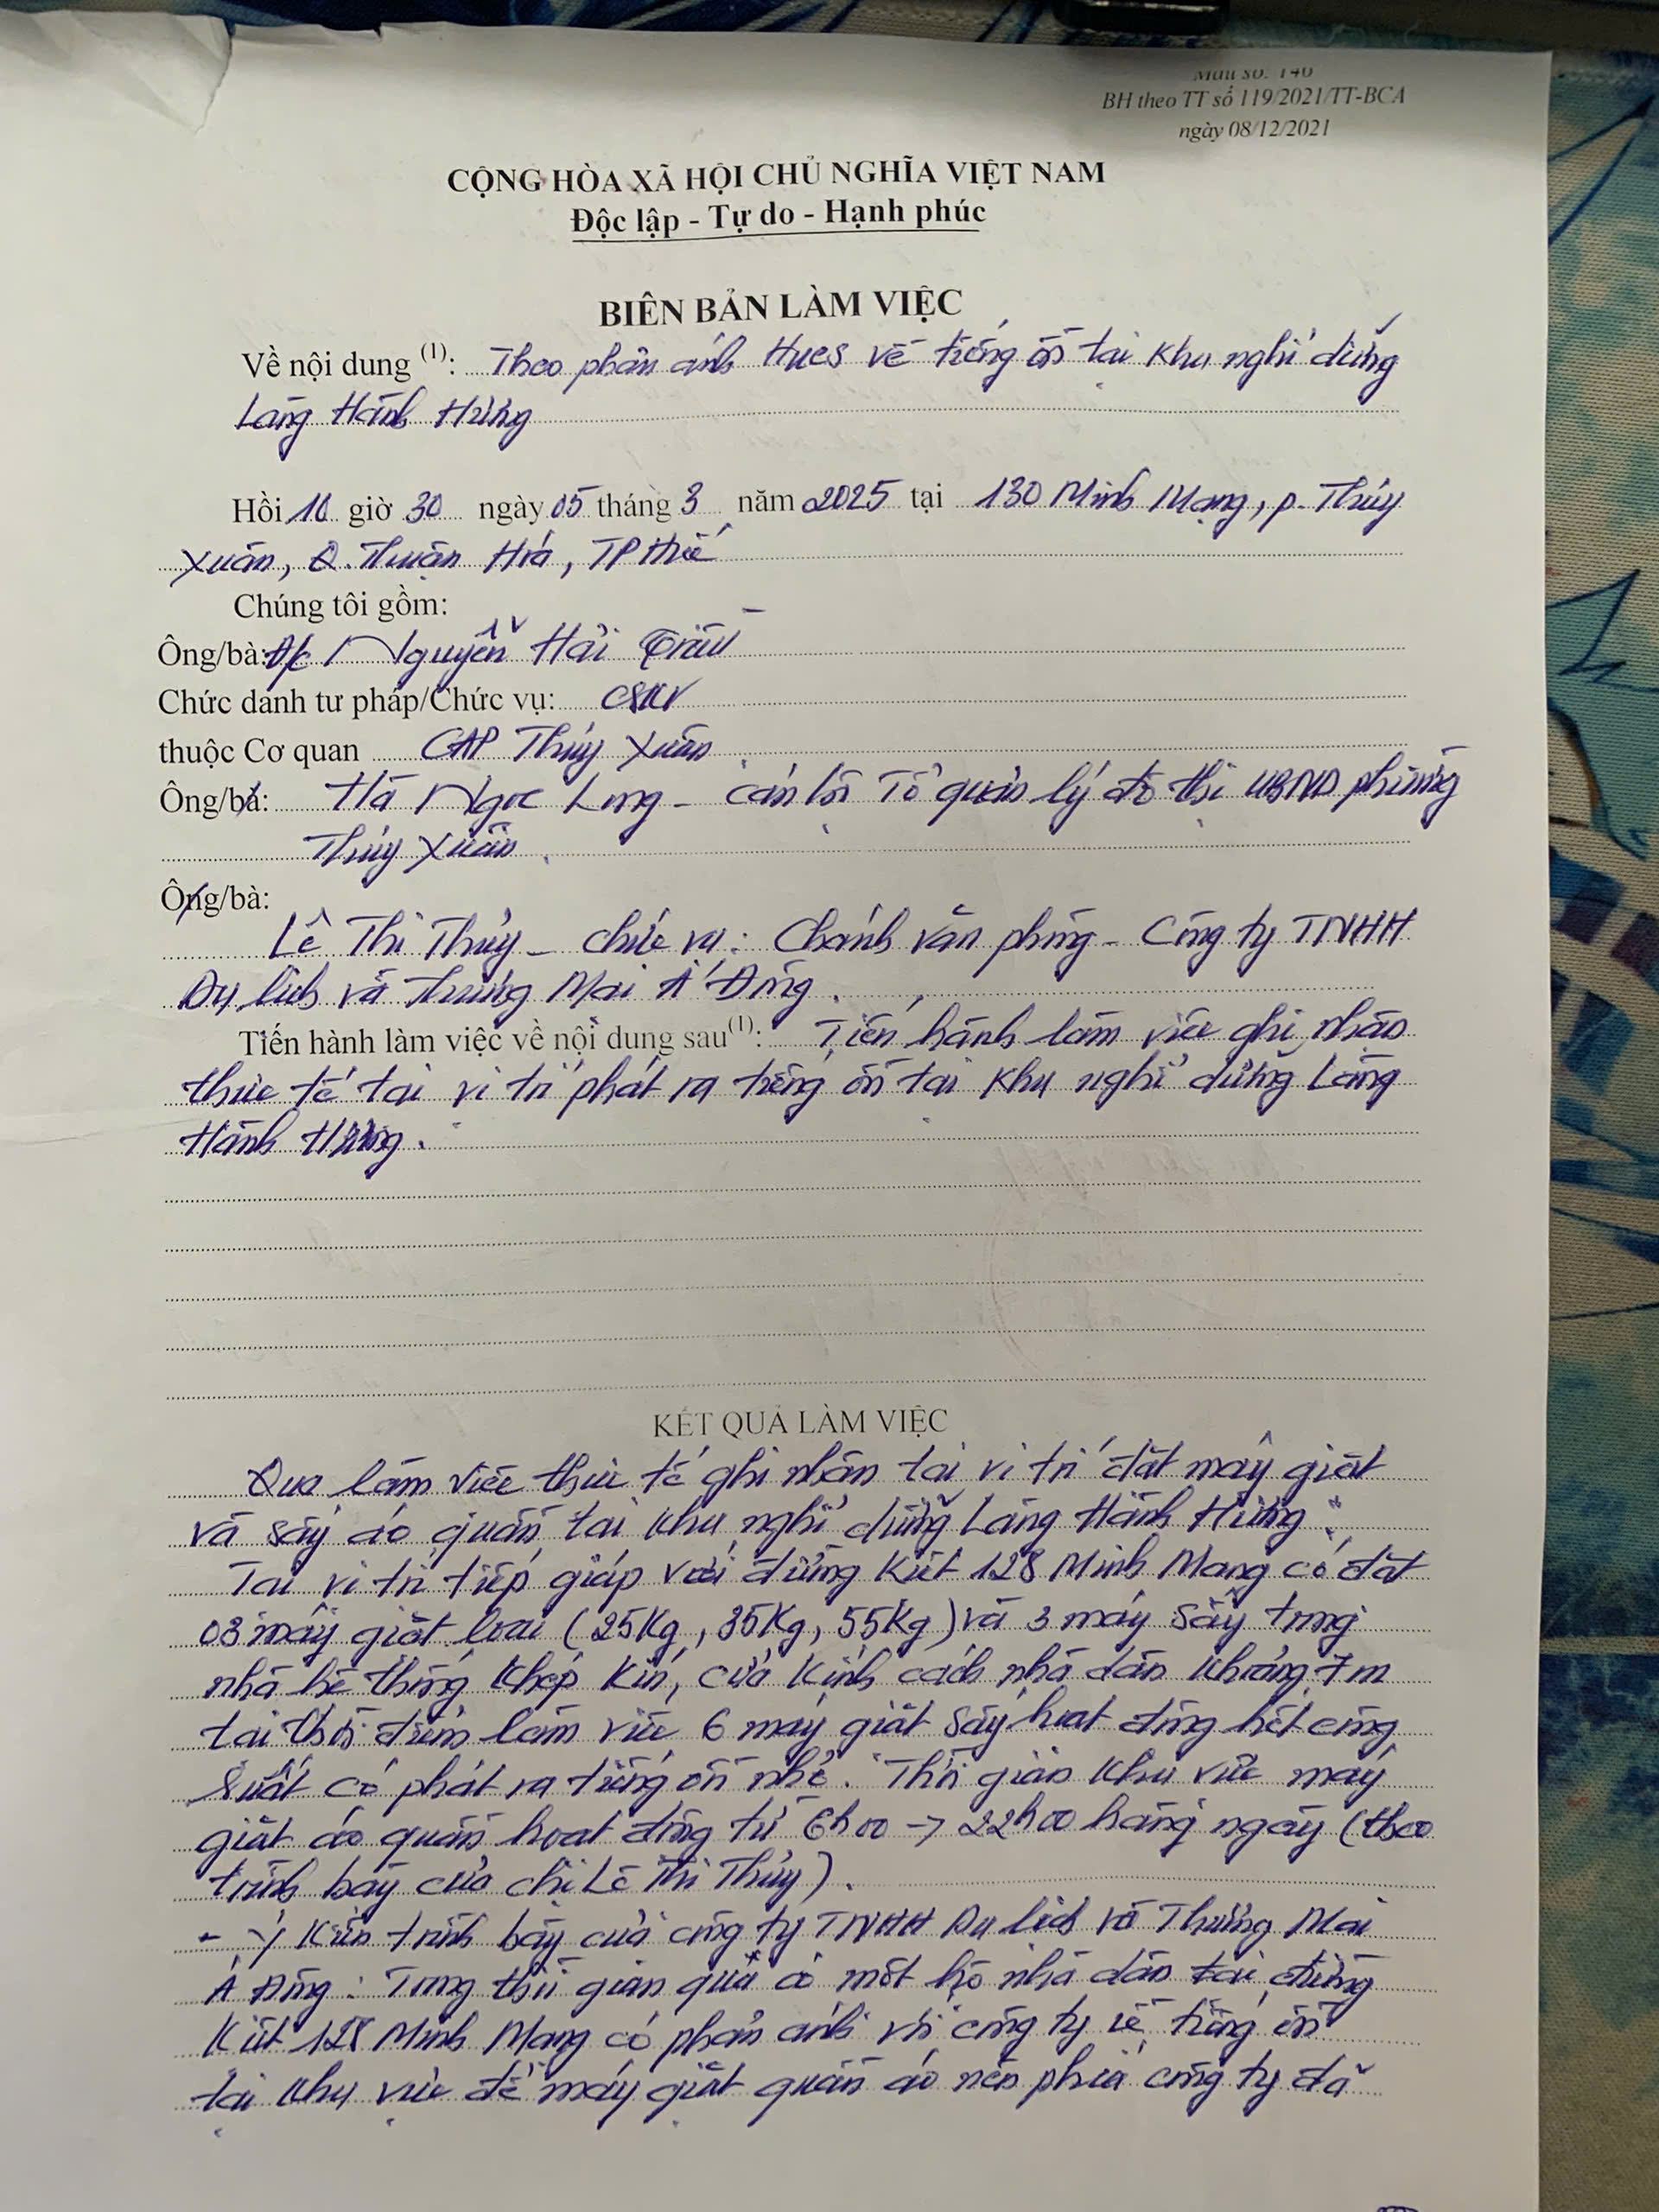 Mẫu số: 146
BH theo TT số 119/2021/TT-BCA
ngày 08/12/2021
CỘNG HÒA XÃ HỘI CHỦ NGHĨA VIỆT NAM
Độc lập - Tự do - Hạnh phúc
BIÊN BẢN LÀM VIỆC
Về nội dung (1): Theo phản ánh Hues về tiếng ồn tại khu nghỉ dưỡng
Làng Hành Hương
Hồi 10 giờ 30 ngày 05 tháng 3 năm 2025 tại 130 Minh Mạng, p. Thủy
Xuân, Q. Thuận Hoá, TP Huế
Chúng tôi gồm:
Ông/bà: Đ/c Nguyễn Hải
Chức danh tư pháp/Chức vụ: CSKV
thuộc Cơ quan CAP Thủy Xuân
Ông/bà: Hà Ngọc Long - cán bộ Tổ quản lý đô thị UBND phường
Thủy Xuân
Ông/bà:
Lê Thị Thủy - chức vụ: Chánh văn phòng - Công ty TNHH
Du lịch và Thương Mại Á Đông.
Tiến hành làm việc về nội dung sau(1): Tiến hành làm việc ghi nhận
thực tế tại vị trí phát ra tiếng ồn tại khu nghỉ dưỡng Làng
Hành Hương.
KẾT QUẢ LÀM VIỆC
Qua làm việc thực tế ghi nhận tại vị trí đặt máy giặt
và sấy áo quần tại khu nghỉ dưỡng Làng Hành Hương:
Tại vị trí tiếp giáp với đường Kiệt 128 Minh Mạng có đặt
03 máy giặt loại (25Kg, 35Kg, 55Kg) và 3 máy sấy trong
nhà hệ thống khép kín, cửa kính cách nhà dân khoảng 7m
tại thời điểm làm việc 6 máy giặt sấy hoạt động hết công
suất có phát ra tiếng ồn nhỏ. Thời gian khu vực máy
giặt áo quần hoạt động từ 6h00 -> 22h00 hàng ngày (theo
trình bày của chị Lê Thị Thủy).
- Ý kiến trình bày của công ty TNHH Du lịch và Thương Mại
Á Đông: Trong thời gian qua có một hộ nhà dân tại đường
Kiệt 128 Minh Mạng có phản ánh với công ty về tiếng ồn
tại khu vực để máy giặt quần áo nên phía công ty đã